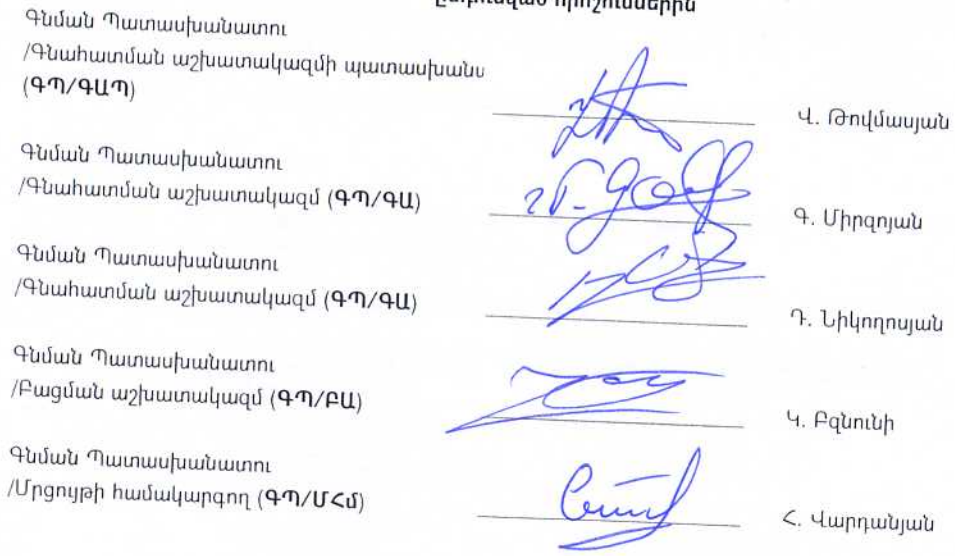 որոշումներին
Գնման Պատասխանատու
/Գնահատման աշխատակազմի պատասխանս
(ԳՊ/ԳԱՊ)
Վ. Թովմասյան
Գնման Պատասխանատու
/Գնահատման աշխատակազմ (ԳՊ/ԳԱ)
Գ. Միրզոյան
Գնման Պատասխանատու
/Գնահատման աշխատակազմ (ԳՊ/ԳԱ)
Դ. Նիկողոսյան
Գնման Պատասխանատու
/Բացման աշխատակազմ (ԳՊ/ԲԱ)
Կ. Բզնունի
Գնման Պատասխանատու
/Մրցույթի համակարգող (ԳՊ/ՄՀմ)
Հ. Վարդանյան